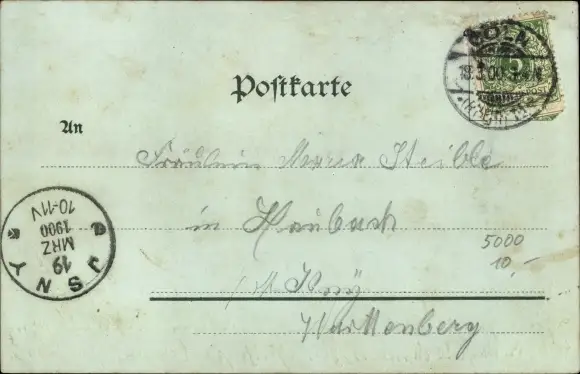 CÖLN
18.3.00.
Postkarte
An
Fräulein Maria Steible
in Haubach
5000
10,-
Württemberg
ISNY
19
MRZ
1900
10-11V